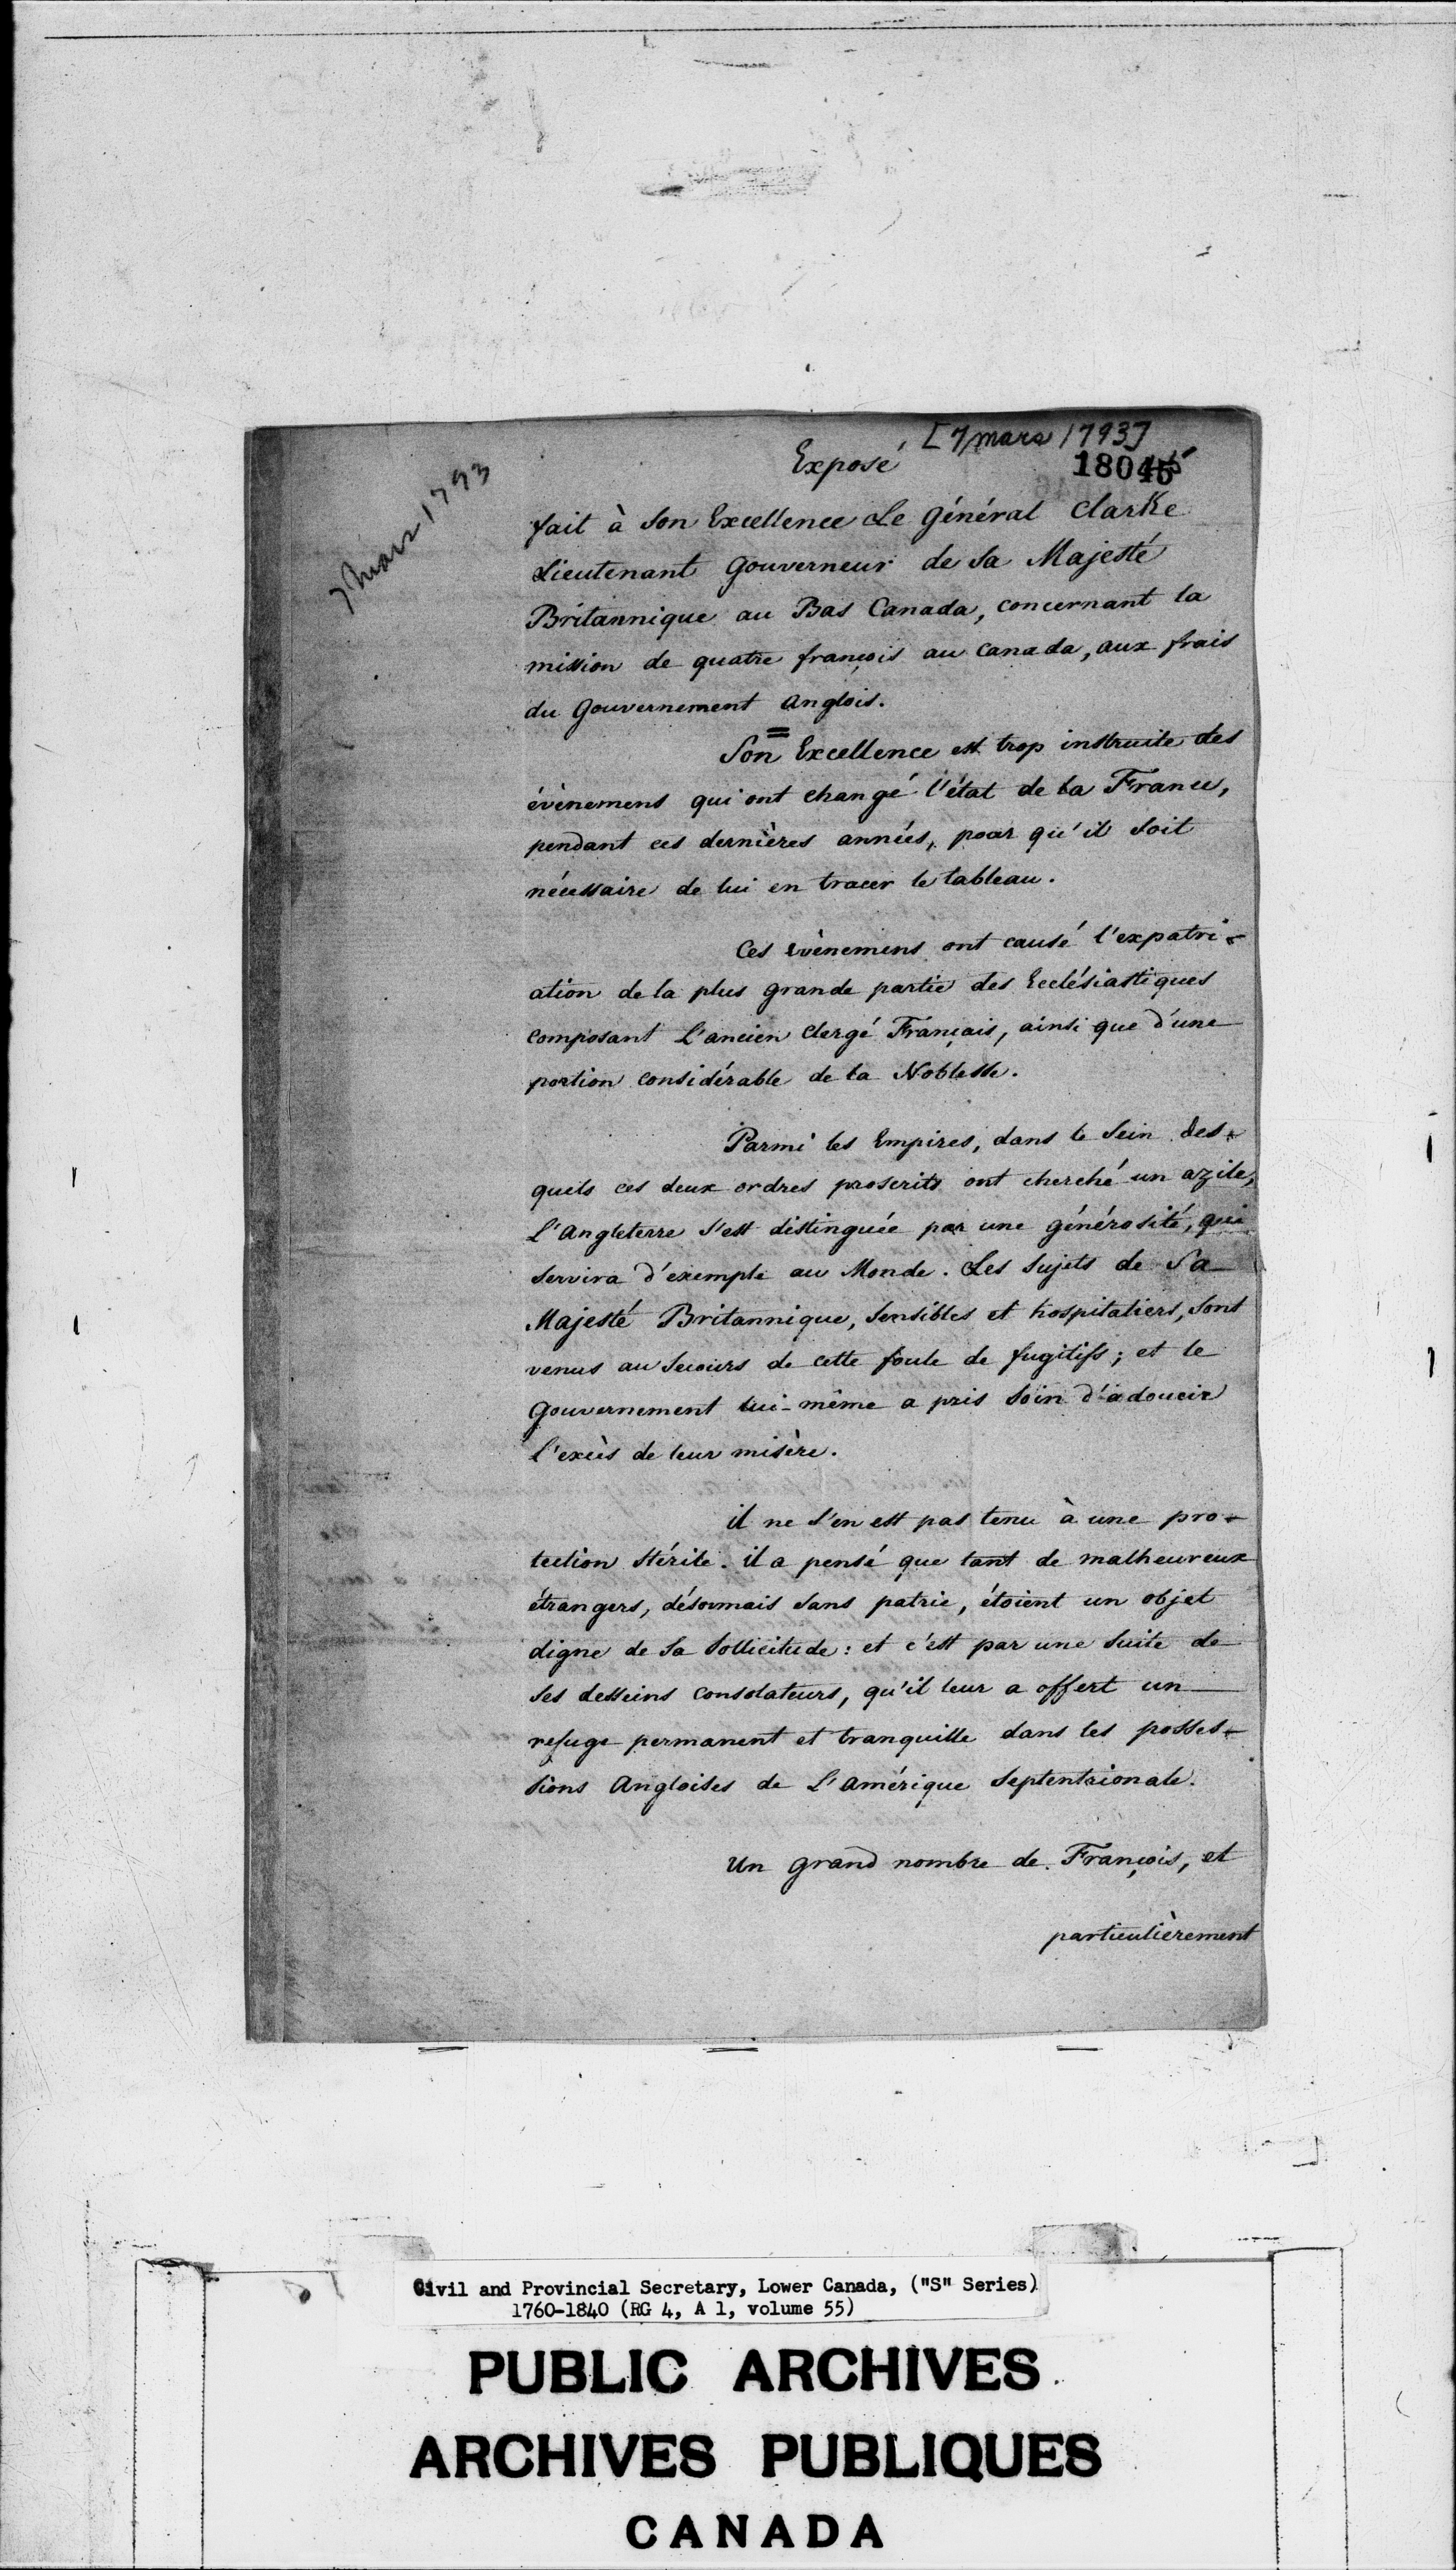 [7 mars 1793]
Exposé
18045
7 mars 1793
fait à Son Excellence Le Général Clarke
Lieutenant Gouverneur de Sa Majesté
Britannique au Bas Canada, concernant la
mission de quatre françois au Canada, aux frais
du Gouvernement Anglois.
Son Excellence est trop instruite des
évènemens qui ont changé l'état de la France,
pendant ces dernières années, pour qu'il soit
nécessaire de lui en tracer le tableau.
Ces évènemens ont causé l'expatri-
ation de la plus grande partie des Ecclésiastiques
composant L'ancien Clergé Français, ainsi que d'une
portion considérable de la Noblesse.
Parmi les Empires, dans le Sein des-
quels ces deux ordres proscrits ont cherché un azile,
L'Angleterre s'est distinguée par une générosité, qui
servira d'exemple au Monde. Les Sujets de Sa
Majesté Britannique, sensibles et hospitaliers, sont
venus au Secours de cette foule de fugitifs; et le
Gouvernement lui-même a pris Soin d'adoucir
l'excès de leur misère.
il ne s'en est pas tenu à une pro-
tection stérile. il a pensé que tant de malheureux
étrangers, désormais sans patrie, étoient un objet
digne de Sa Sollicitude: et c'est par une suite de
ses desseins consolateurs, qu'il leur a offert un
refuge permanent et tranquille dans les posses-
sions Angloises de L'Amérique Septentrionale.
Un grand nombre de François, et
particulièrement
Civil and Provincial Secretary, Lower Canada, ("S" Series)
1760-1840 (RG 4, A 1, volume 55)
PUBLIC ARCHIVES
ARCHIVES PUBLIQUES
CANADA